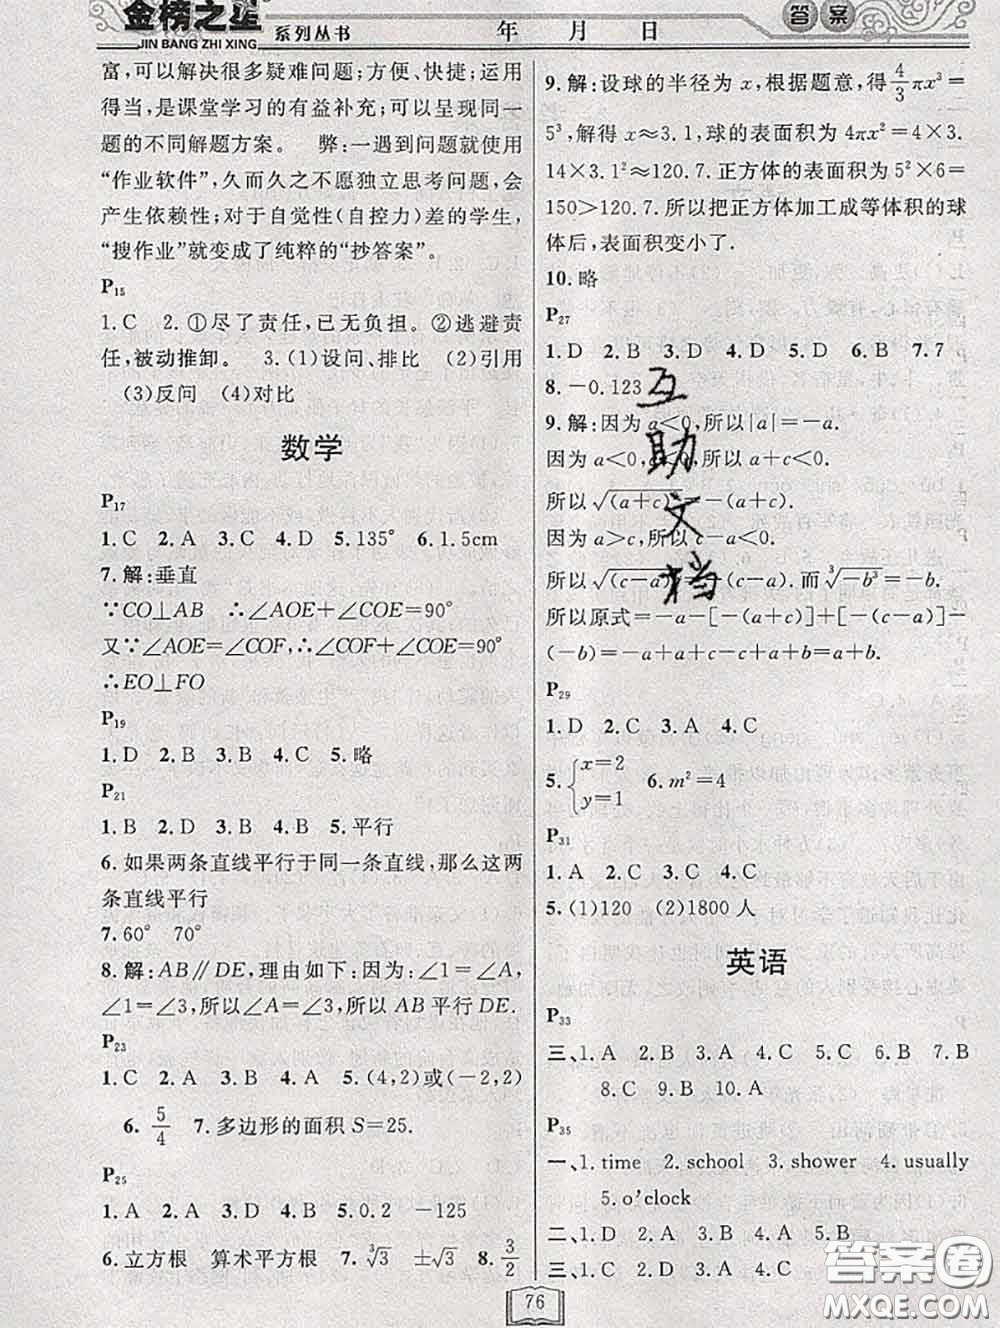 金榜之星
JIN BANG ZHI XING
系列丛书
年 月 日
答案
富,可以解决很多疑难问题;方便、快捷;运用
得当,是课堂学习的有益补充;可以呈现同一
题的不同解题方案。 弊:一遇到问题就使用
“作业软件”,久而久之不愿独立思考问题,会
产生依赖性;对于自觉性(自控力)差的学生,
“搜作业”就变成了纯粹的“抄答案”。
P15
1.C 2.①尽了责任,已无负担。②逃避责
任,被动推卸。 3.(1)设问、排比 (2)引用
(3)反问 (4)对比
数学
P17
1.C 2.A 3.C 4.D 5.135° 6.1.5cm
7.解:垂直
∵CO⊥AB ∴∠AOE+∠COE=90°
又∵∠AOE=∠COF, ∴∠COF+∠COE=90°
∴EO⊥FO
P19
1.D 2.B 3.B 4.C 5.略
P21
1.B 2.D 3.B 4.B 5.平行
6.如果两条直线平行于同一条直线,那么这两
条直线平行
7.60° 70°
8.解:AB∥DE,理由如下:因为:∠1=∠A,
∠1=∠3,所以∠A=∠3,所以 AB 平行 DE.
P23
1.C 2.A 3.B 4.A 5.(4,2)或(-2,2)
6. 5/4 7.多边形的面积 S=25.
P25
1.A 2.A 3.D 4.B 5.0.2 -125
6.立方根 算术平方根 7.∛3 ±√3 8. 3/2
9.解:设球的半径为 x,根据题意,得 4/3 πx³=
5³,解得 x≈3.1,球的表面积为 4πx²=4×3.
14×3.1²≈120.7.正方体的表面积为 5²×6=
150>120.7.所以把正方体加工成等体积的球
体后,表面积变小了.
10.略
P27
1.D 2.B 3.D 4.D 5.D 6.B 7.7
8.-0.123
9.解:因为 a<0,所以|a|=-a.
因为 a<0,c<0,所以 a+c<0.
所以 √(a+c) =-(a+c).
因为 a>c,所以 c-a<0.
所以 √(c-a) =-(c-a).而 ∛-b³=-b.
所以原式=-a-[-(a+c)]+[-(c-a)]-
(-b)=-a+a+c-c+a+b=a+b.
互助文档
P29
1.D 2.C 3.A 4.C
5.{x=2
y=1 6.m²=4
P31
1.A 2.C 3.C 4.C
5.(1)120 (2)1800 人
英语
P33
三、1.A 2.B 3.A 4.C 5.C 6.B 7.B
8.C 9.B 10.A
P35
一、1.time 2.school 3.shower 4.usually
5.o'clock
二、1.D 2.A 3.A 4.A 5.B
三、1.C 2.A 3.B 4.C
76
答案圈
MXQE.COM